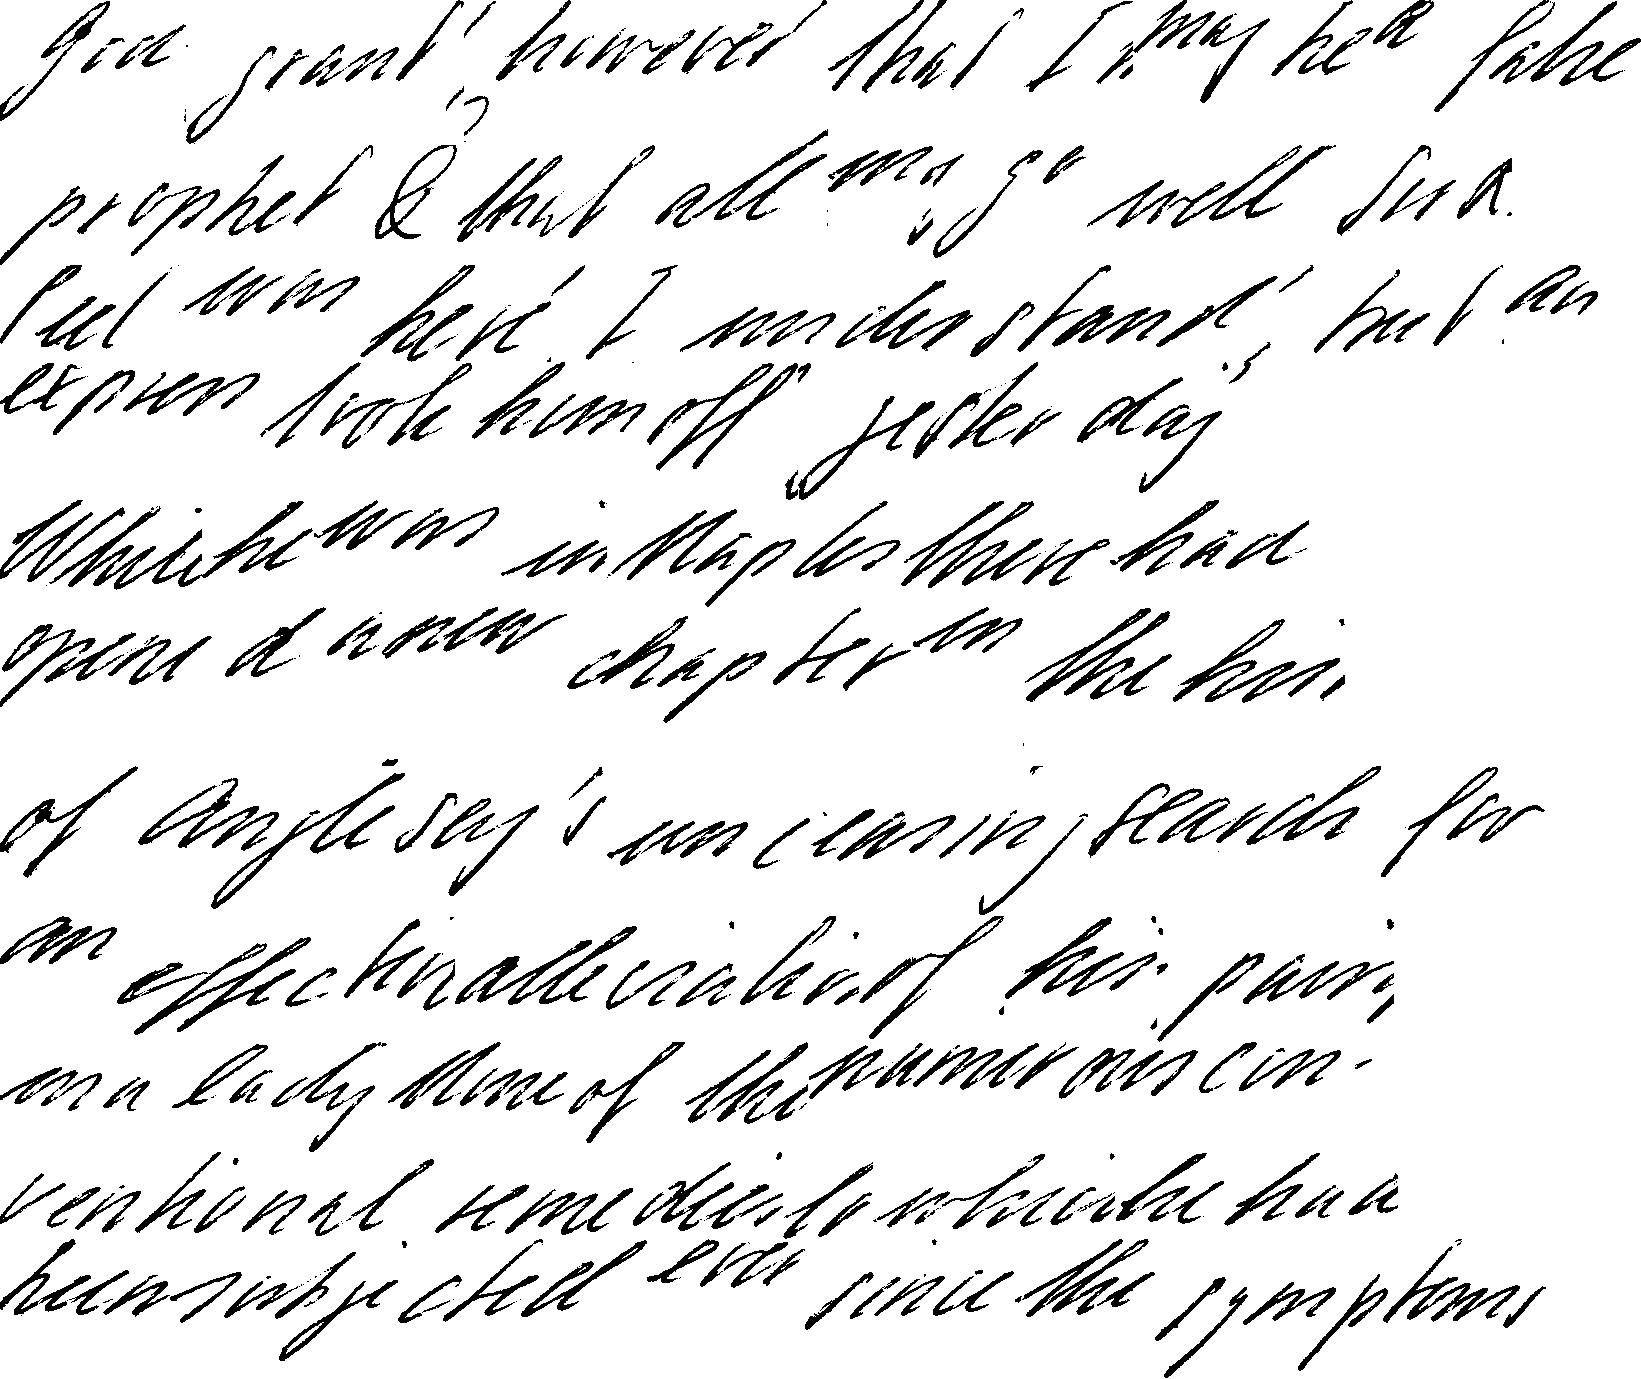 God grant, however that I may be a false
prophet & that all may go well Sir R.
Peel was here, I understand, but an
express took him off "yesterday"
While he was in Naples there had
opened a new chapter in the his-
of Anglesey's unceasing search for
an effective alleviation of his pain,
malady None of the numerous con-
ventional remedies to which he had
been subjected ever since the symptoms